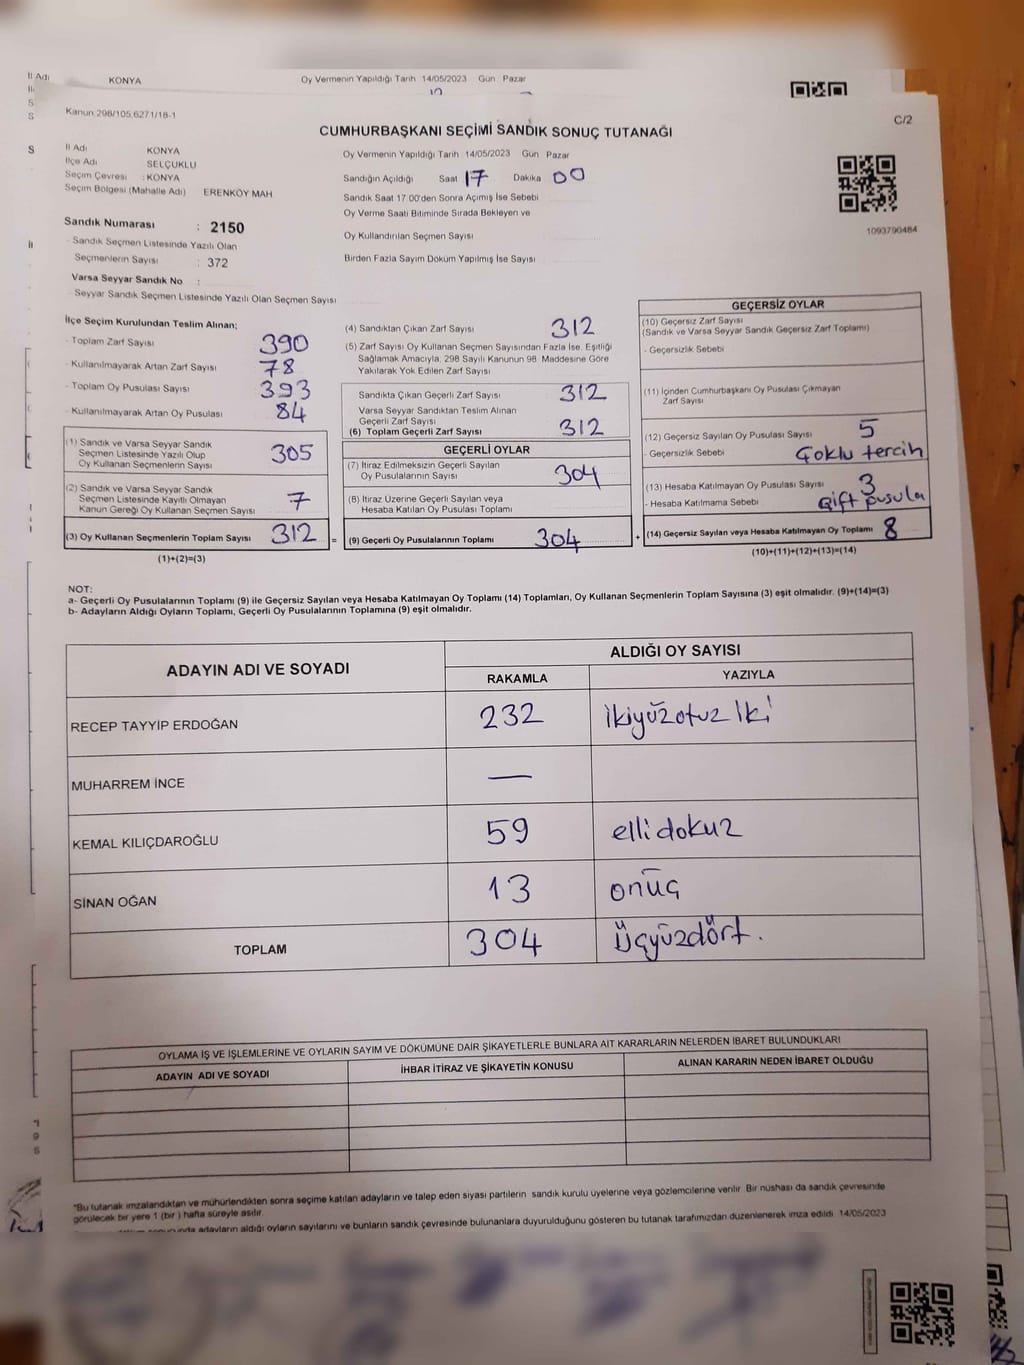 İl Adı KONYA Oy Vermenin Yapıldığı Tarih 14/05/2023 Gün Pazar
Kanun 298/105,6271/18-1
C/2
CUMHURBAŞKANI SEÇİMİ SANDIK SONUÇ TUTANAĞI
İl Adı KONYA
İlçe Adı SELÇUKLU
Seçim Çevresi : KONYA
Seçim Bölgesi (Mahalle Adı) ERENKÖY MAH
Sandık Numarası : 2150
- Sandık Seçmen Listesinde Yazılı Olan
Seçmenlerin Sayısı : 372
Varsa Seyyar Sandık No :
- Seyyar Sandık Seçmen Listesinde Yazılı Olan Seçmen Sayısı
Oy Vermenin Yapıldığı Tarih 14/05/2023 Gün Pazar
Sandığın Açıldığı Saat 17 Dakika 00
Sandık Saat 17.00'den Sonra Açımış İse Sebebi
Oy Verme Saati Bitiminde Sırada Bekleyen ve
Oy Kullandırılan Seçmen Sayısı
Birden Fazla Sayım Döküm Yapılmış İse Sayısı
1093790484
İlçe Seçim Kurulundan Teslim Alınan;
- Toplam Zarf Sayısı 390
- Kullanılmayarak Artan Zarf Sayısı 78
- Toplam Oy Pusulası Sayısı 393
- Kullanılmayarak Artan Oy Pusulası 84
(1) Sandık ve Varsa Seyyar Sandık
Seçmen Listesinde Yazılı Olup
Oy Kullanan Seçmenlerin Sayısı 305
(2) Sandık ve Varsa Seyyar Sandık
Seçmen Listesinde Kayıtlı Olmayan
Kanun Gereği Oy Kullanan Seçmen Sayısı 7
(3) Oy Kullanan Seçmenlerin Toplam Sayısı 312
(1)+(2)=(3)
(4) Sandıktan Çıkan Zarf Sayısı 312
(5) Zarf Sayısı Oy Kullanan Seçmen Sayısından Fazla İse, Eşitliği
Sağlamak Amacıyla, 298 Sayılı Kanunun 98. Maddesine Göre
Yakılarak Yok Edilen Zarf Sayısı
Sandıkta Çıkan Geçerli Zarf Sayısı 312
Varsa Seyyar Sandıktan Teslim Alınan
Geçerli Zarf Sayısı
(6) Toplam Geçerli Zarf Sayısı 312
GEÇERLİ OYLAR
(7) İtiraz Edilmeksizin Geçerli Sayılan
Oy Pusulalarının Sayısı 304
(8) İtiraz Üzerine Geçerli Sayılan veya
Hesaba Katılan Oy Pusulası Toplamı
= (9) Geçerli Oy Pusulalarının Toplamı 304 +
GEÇERSİZ OYLAR
(10) Geçersiz Zarf Sayısı
(Sandık ve Varsa Seyyar Sandık Geçersiz Zarf Toplamı)
- Geçersizlik Sebebi
(11) İçinden Cumhurbaşkanı Oy Pusulası Çıkmayan
Zarf Sayısı
(12) Geçersiz Sayılan Oy Pusulası Sayısı 5
- Geçersizlik Sebebi Çoklu tercih
(13) Hesaba Katılmayan Oy Pusulası Sayısı 3
- Hesaba Katılmama Sebebi Çift pusula
(14) Geçersiz Sayılan veya Hesaba Katılmayan Oy Toplamı 8
(10)+(11)+(12)+(13)=(14)
NOT:
a- Geçerli Oy Pusulalarının Toplamı (9) ile Geçersiz Sayılan veya Hesaba Katılmayan Oy Toplamı (14) Toplamları, Oy Kullanan Seçmenlerin Toplam Sayısına (3) eşit olmalıdır. (9)+(14)=(3)
b- Adayların Aldığı Oyların Toplamı, Geçerli Oy Pusulalarının Toplamına (9) eşit olmalıdır.
ADAYIN ADI VE SOYADI ALDIĞI OY SAYISI
RAKAMLA YAZIYLA
RECEP TAYYİP ERDOĞAN 232 ikiyüzotuz iki
MUHARREM İNCE —
KEMAL KILIÇDAROĞLU 59 ellidokuz
SİNAN OĞAN 13 onüç
TOPLAM 304 Üçyüzdört.
OYLAMA İŞ VE İŞLEMLERİNE VE OYLARIN SAYIM VE DÖKÜMÜNE DAİR ŞİKAYETLERLE BUNLARA AİT KARARLARIN NELERDEN İBARET BULUNDUKLARI
ADAYIN ADI VE SOYADI İHBAR İTİRAZ VE ŞİKAYETİN KONUSU ALINAN KARARIN NEDEN İBARET OLDUĞU
*Bu tutanak imzalandıktan ve mühürlendikten sonra seçime katılan adayların ve talep eden siyasi partilerin sandık kurulu üyelerine veya gözlemcilerine verilir. Bir nüshası da sandık çevresinde
görülecek bir yere 1 (bir) hafta süreyle asılır.
adayların aldığı oyların sayılarını ve bunların sandık çevresinde bulunanlara duyurulduğunu gösteren bu tutanak tarafımızdan düzenlenerek imza edildi. 14/05/2023